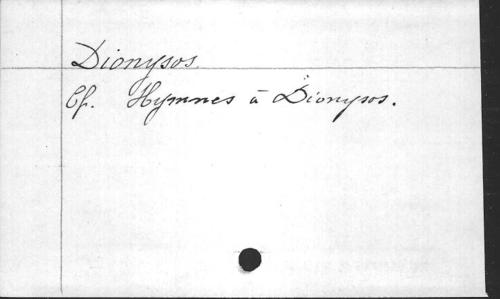 Dionysos.
Cf. Hymnes à Dionysos.